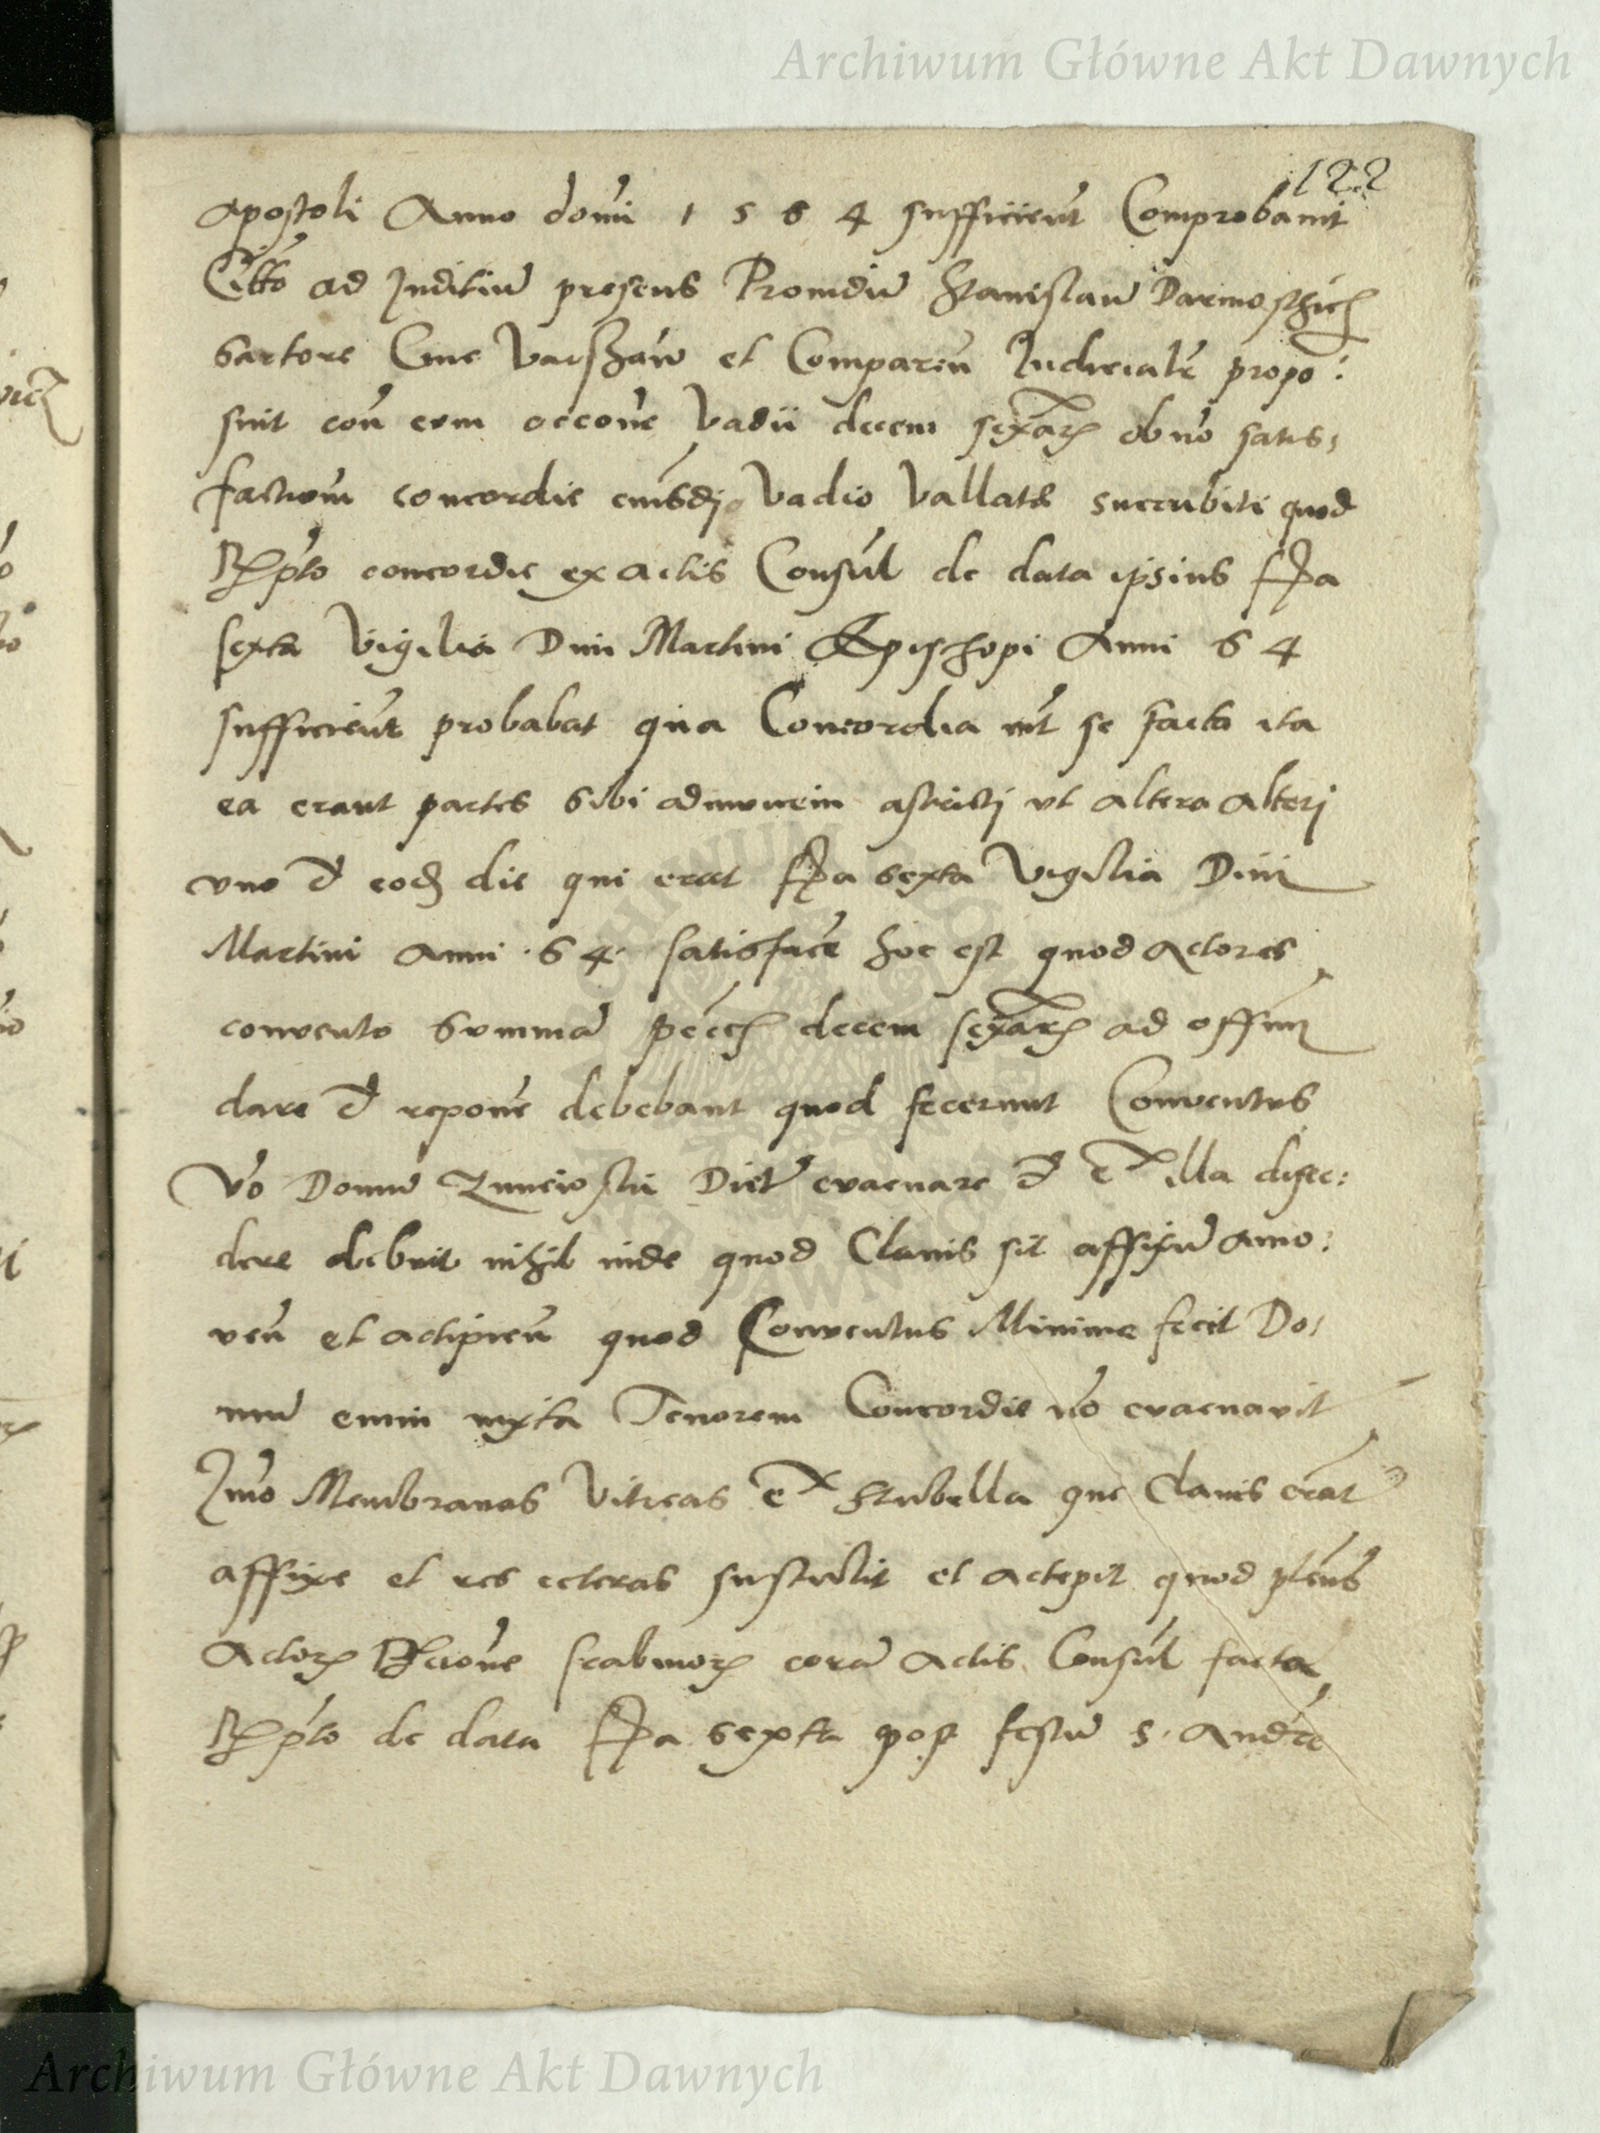 Archiwum Główne Akt Dawnych
122
apostoli Anno domi 1 5 6 4 sufficient Comprobavit
Citto ad Juditiu presens Providu Stanislau Darmosthich
sartore Cive Varshav et Comparen Judicialr propo:
suit con eum accone Vadii decem sexar ob no satis,
factiom concordie eiusdj Vadio Vallate succubiti quod
Rpto concordie ex actis Consul de data ipsius fia
sexta Vigilia Divi Martini Epischopi Anni 6 4
sufficient probabat qua Concordia int se facta ita
ea erant partes sibi admvicem astricti vt altera alterj
vno et eod die qui erat fia sexta Vigilia Divi
Martini Anni 64 satisface hoc est quod Actores
convento Summa decem sexar ad offm
dare et repone debebant quod fecerunt Conventus
Vo Domu evacuare et ex illa disce:
dere debuit nihil inde quod Clavis sit affixu amo:
ven et accipien quod Conventus Minime fecit Do,
mu enim iuxta Tenorem Concordie no evacuavit
Jmo Membranas Vitreas ex Stubella que Clavis erat
affixe et res ceteras sustulit et accepit quod
Actor scabinor cora Actis Consul facta
Rpto de data fia sexta post festu S. Andree
Archiwum Główne Akt Dawnych